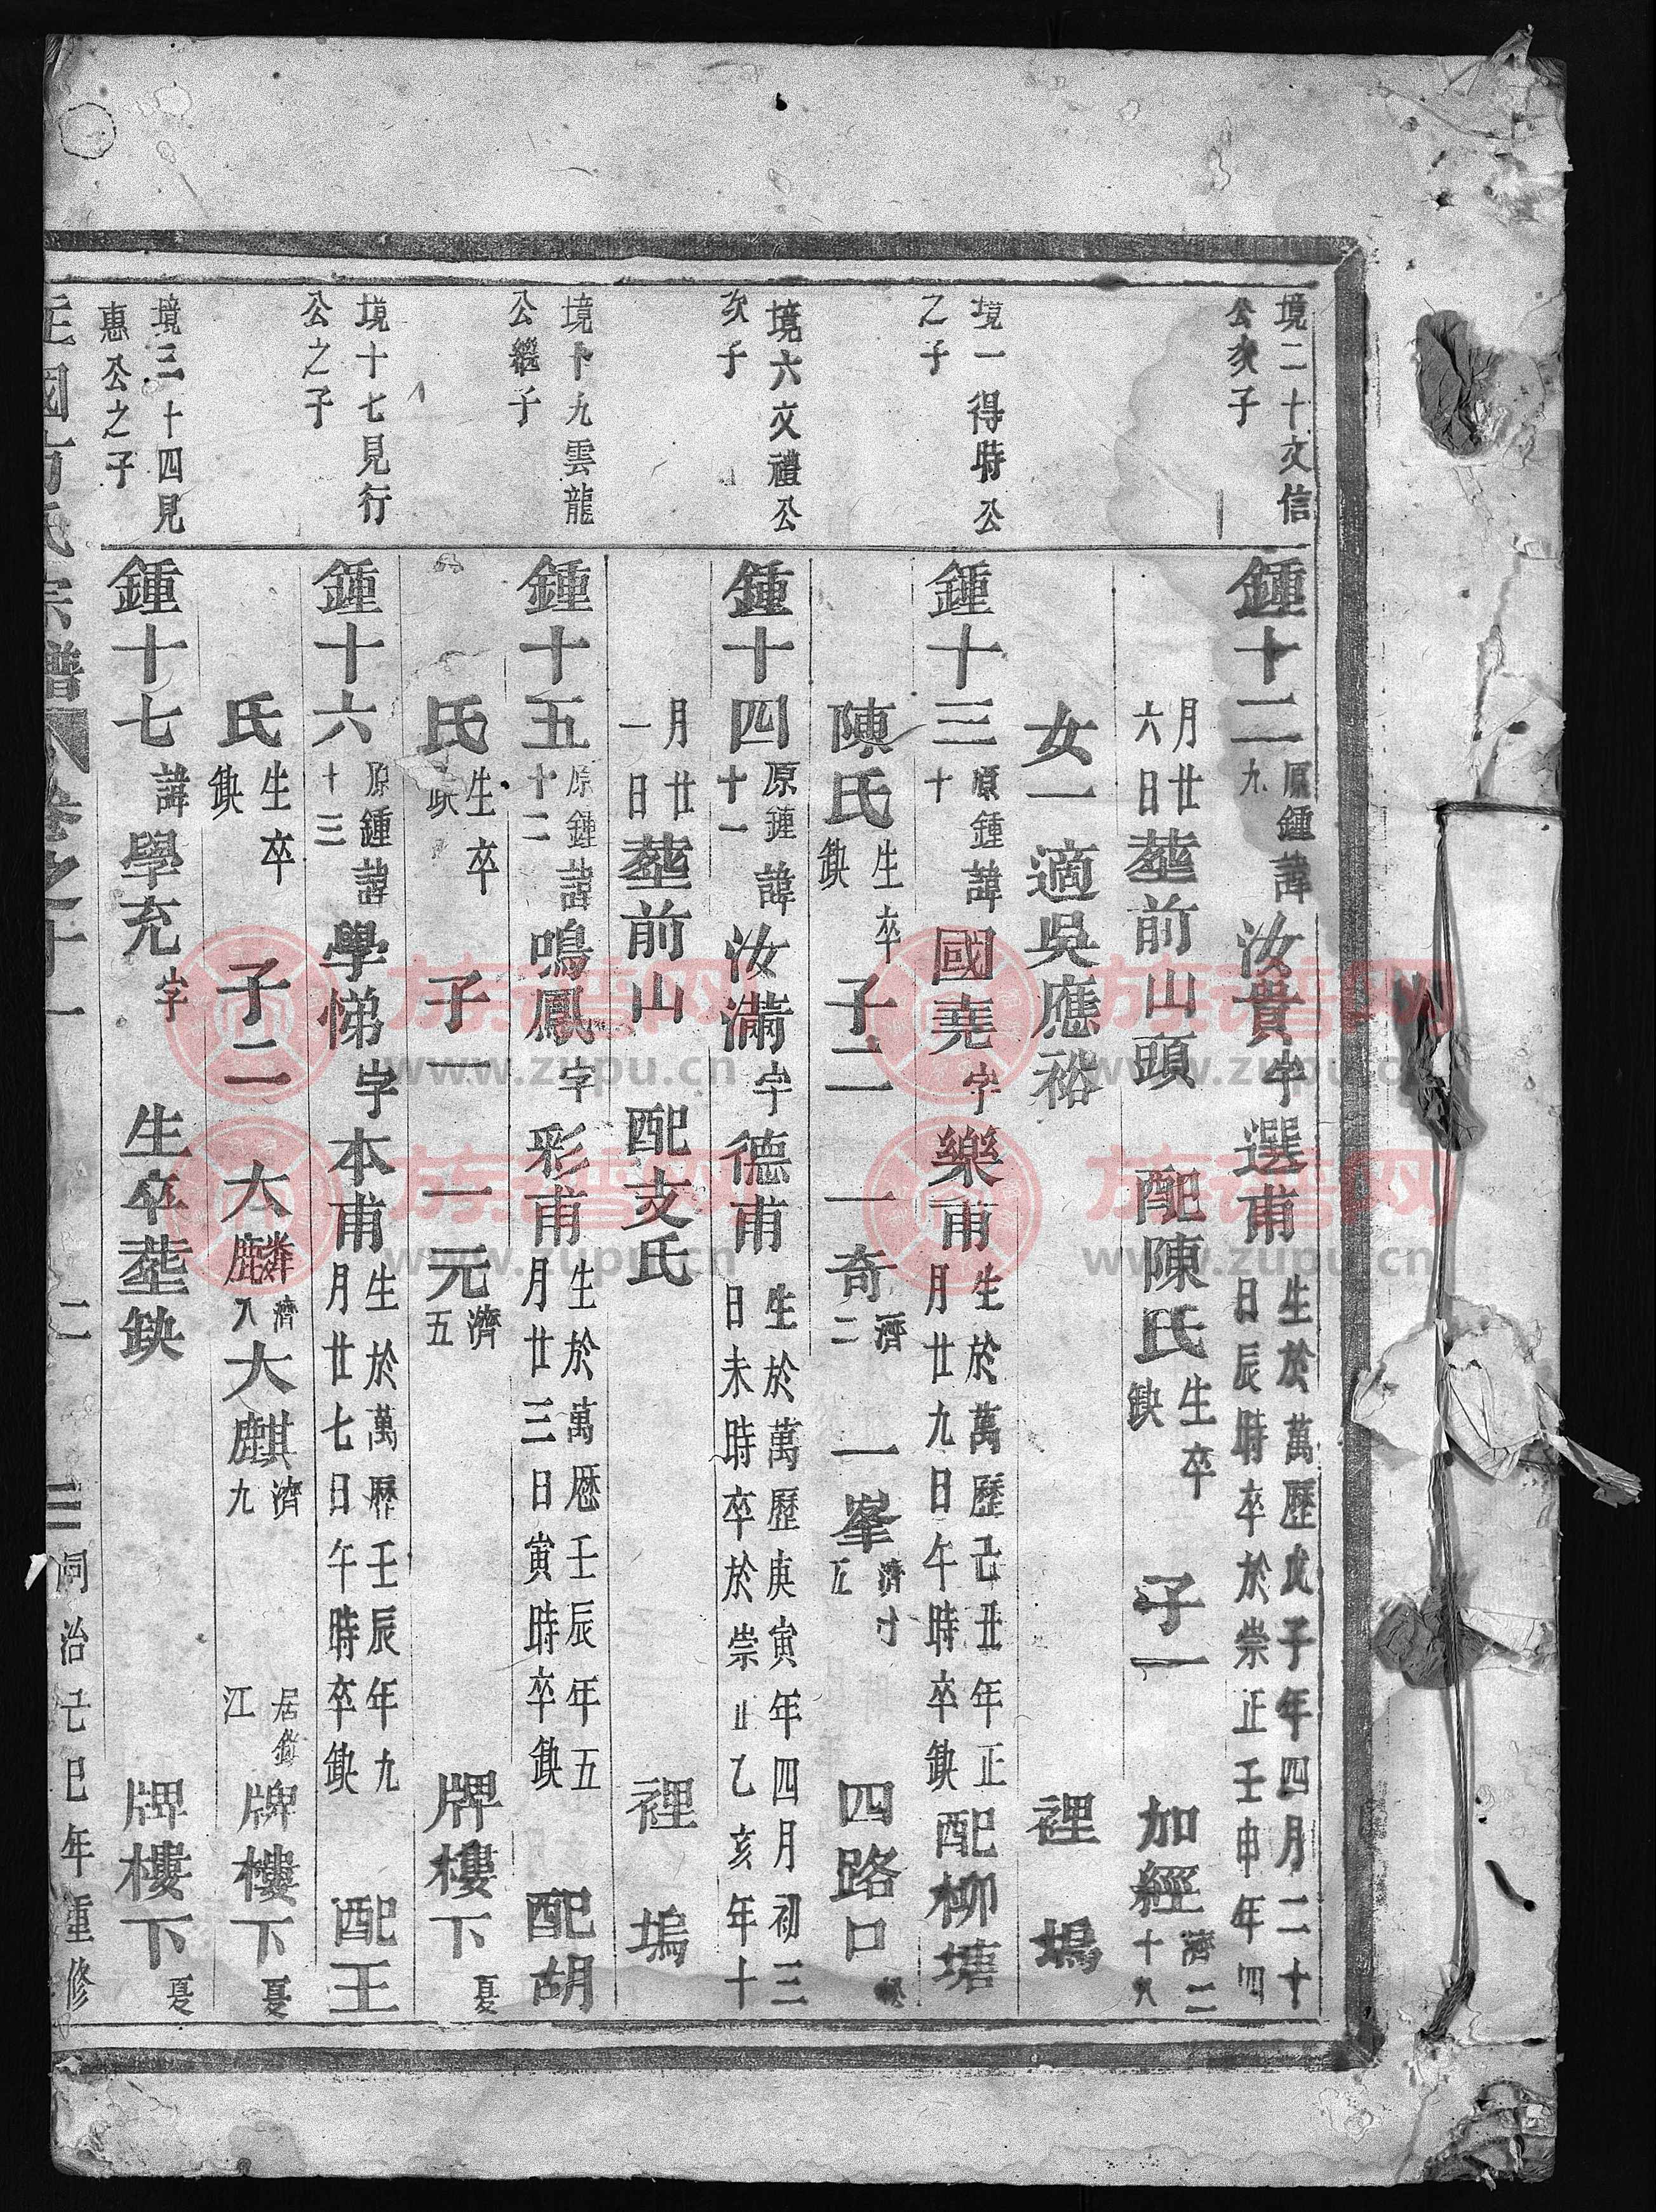 境二十文信公次子
鍾十二原鍾九諱汝貴字選甫生於萬歷戊子年四月二十日辰時卒於崇正壬申年四
月廿六日塟前山頭 配陳氏生卒缺 子一 加經濟二十八
女一適吳應裕 裡塢
境一得時公之子
鍾十三原鍾十諱國堯字樂甫生於萬歷己丑年正月廿九日午時卒缺 配柳塘
陳氏生卒缺 子二 一奇濟二 一峯濟十五 四路口
境六文禮公次子
鍾十四原鍾十一諱汝滿字德甫生於萬歷庚寅年四月初三日未時卒於崇正乙亥年十
月廿一日塟前山 配支氏 裡塢
境十九雲龍公繼子
鍾十五原鍾十二諱鳴鳳字彩甫生於萬歷壬辰年五月廿三日寅時卒缺 配胡
氏生卒缺 子一 一元濟五 牌樓下夏
境十七見行公之子
鍾十六原鍾十三諱學悌字本甫生於萬歷壬辰年九月廿七日午時卒缺 配王
氏生卒缺 子二 大麟濟八 大麒濟九 居鎮江 牌樓下夏
境三十四見惠公之子
鍾十七諱學充字 生卒塟缺 牌樓下夏
氏宗譜 卷之十一 二 三 同治己巳年重修
族谱网
www.zupu.cn
族谱网
www.zupu.cn
族谱网
www.zupu.cn
族谱网
www.zupu.cn